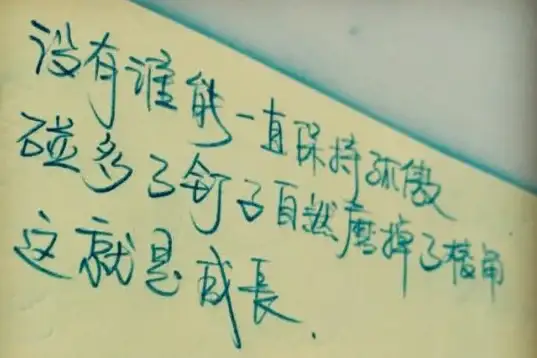 没有谁能一直保持孤傲
碰多了钉子自然磨掉了棱角
这就是成長.